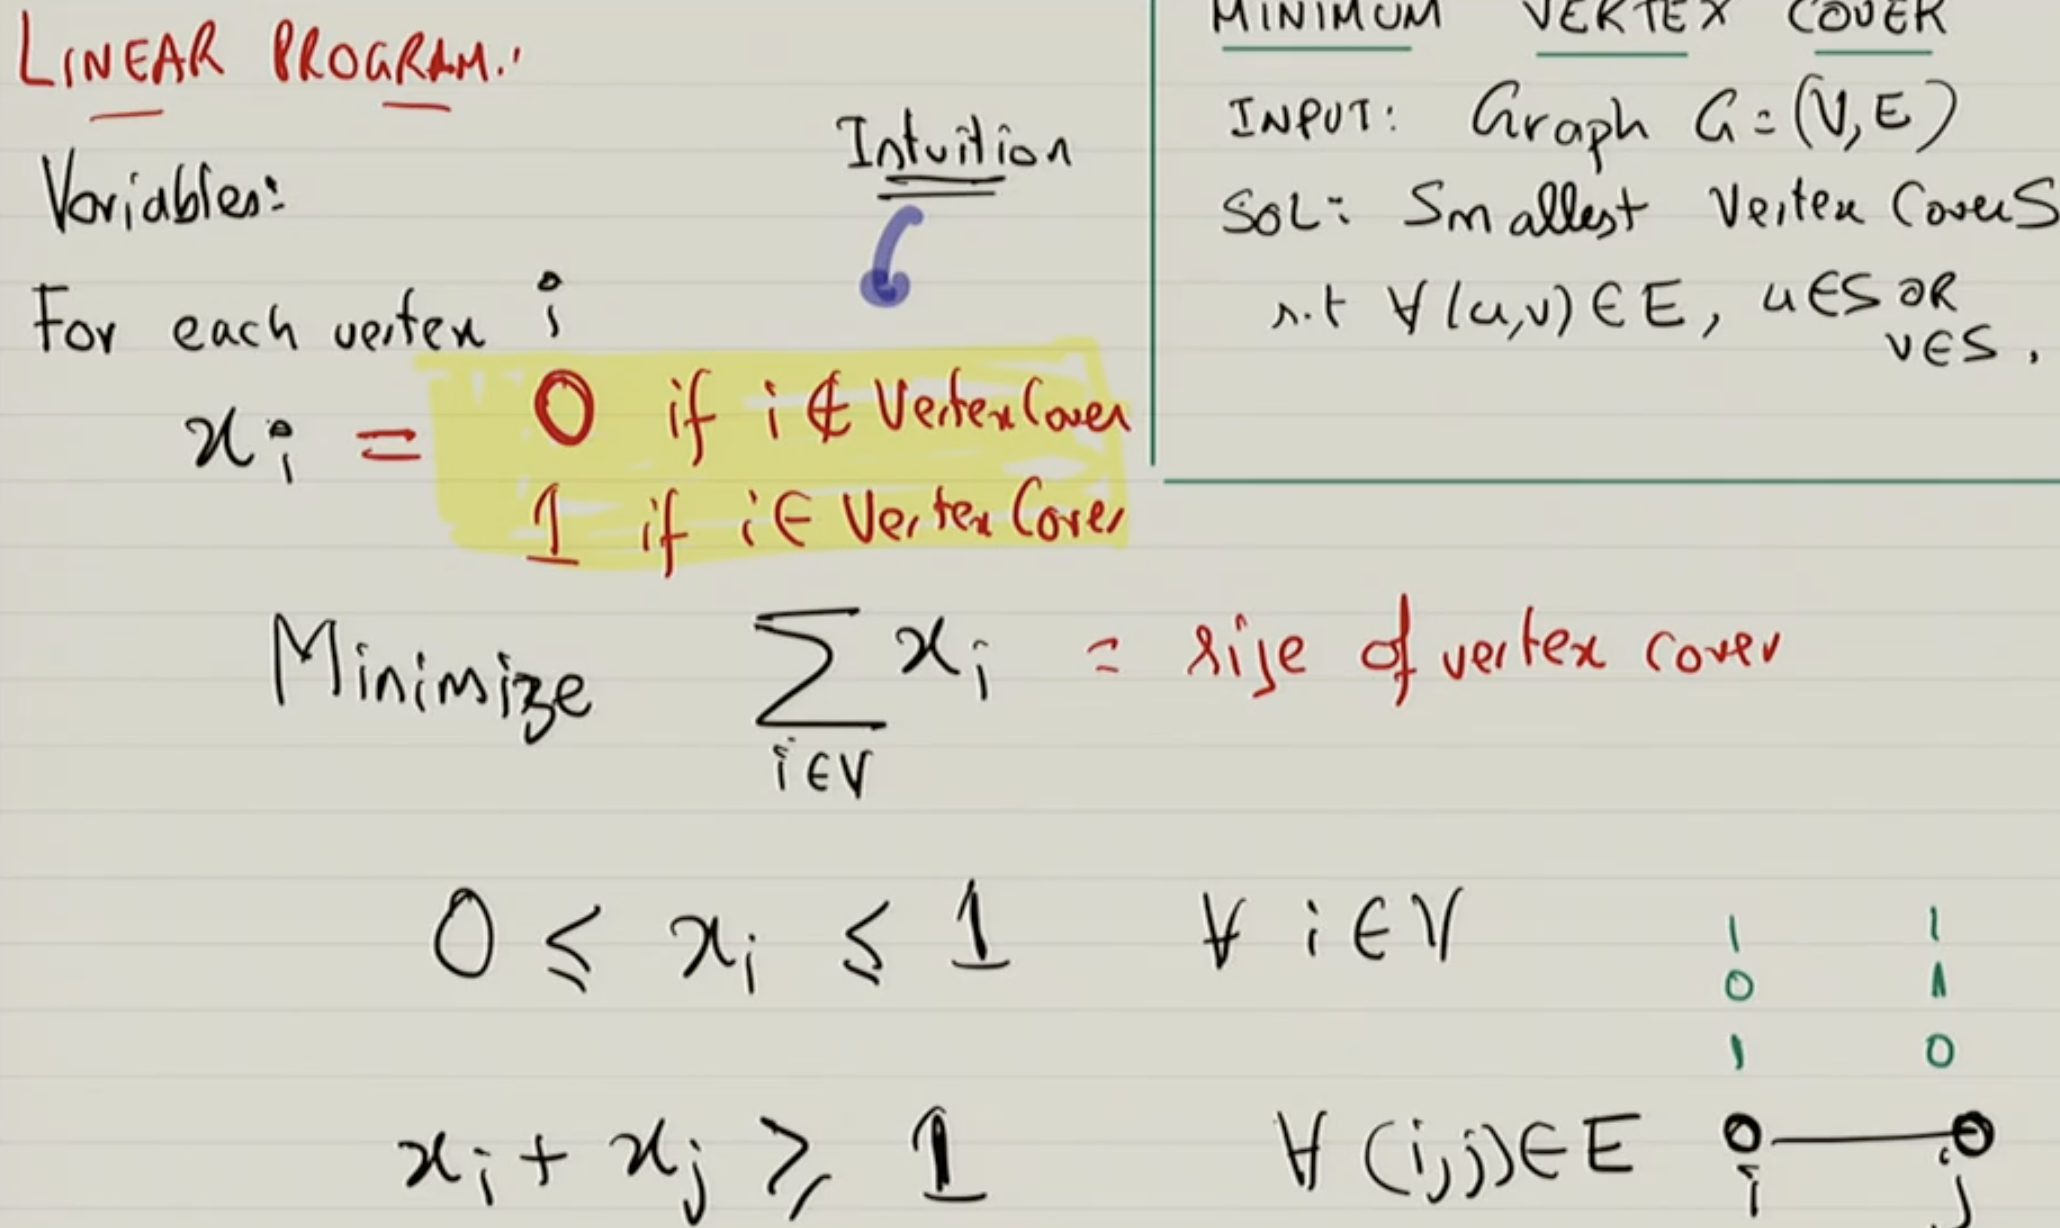 LINEAR PROGRAM:
Variables:
For each vertex i
Intuition
x_i = 0 if i ∉ Vertex Cover
1 if i ∈ Vertex Cover
MINIMUM VERTEX COVER
INPUT: Graph G = (V, E)
SOL: Smallest Vertex Cover S
s.t ∀ (u,v) ∈ E, u ∈ S OR
v ∈ S.
Minimize ∑ x_i = size of vertex cover
i ∈ V
0 ≤ x_i ≤ 1 ∀ i ∈ V
1 1
0 1
1 0
x_i + x_j ≥ 1 ∀ (i,j) ∈ E
i j